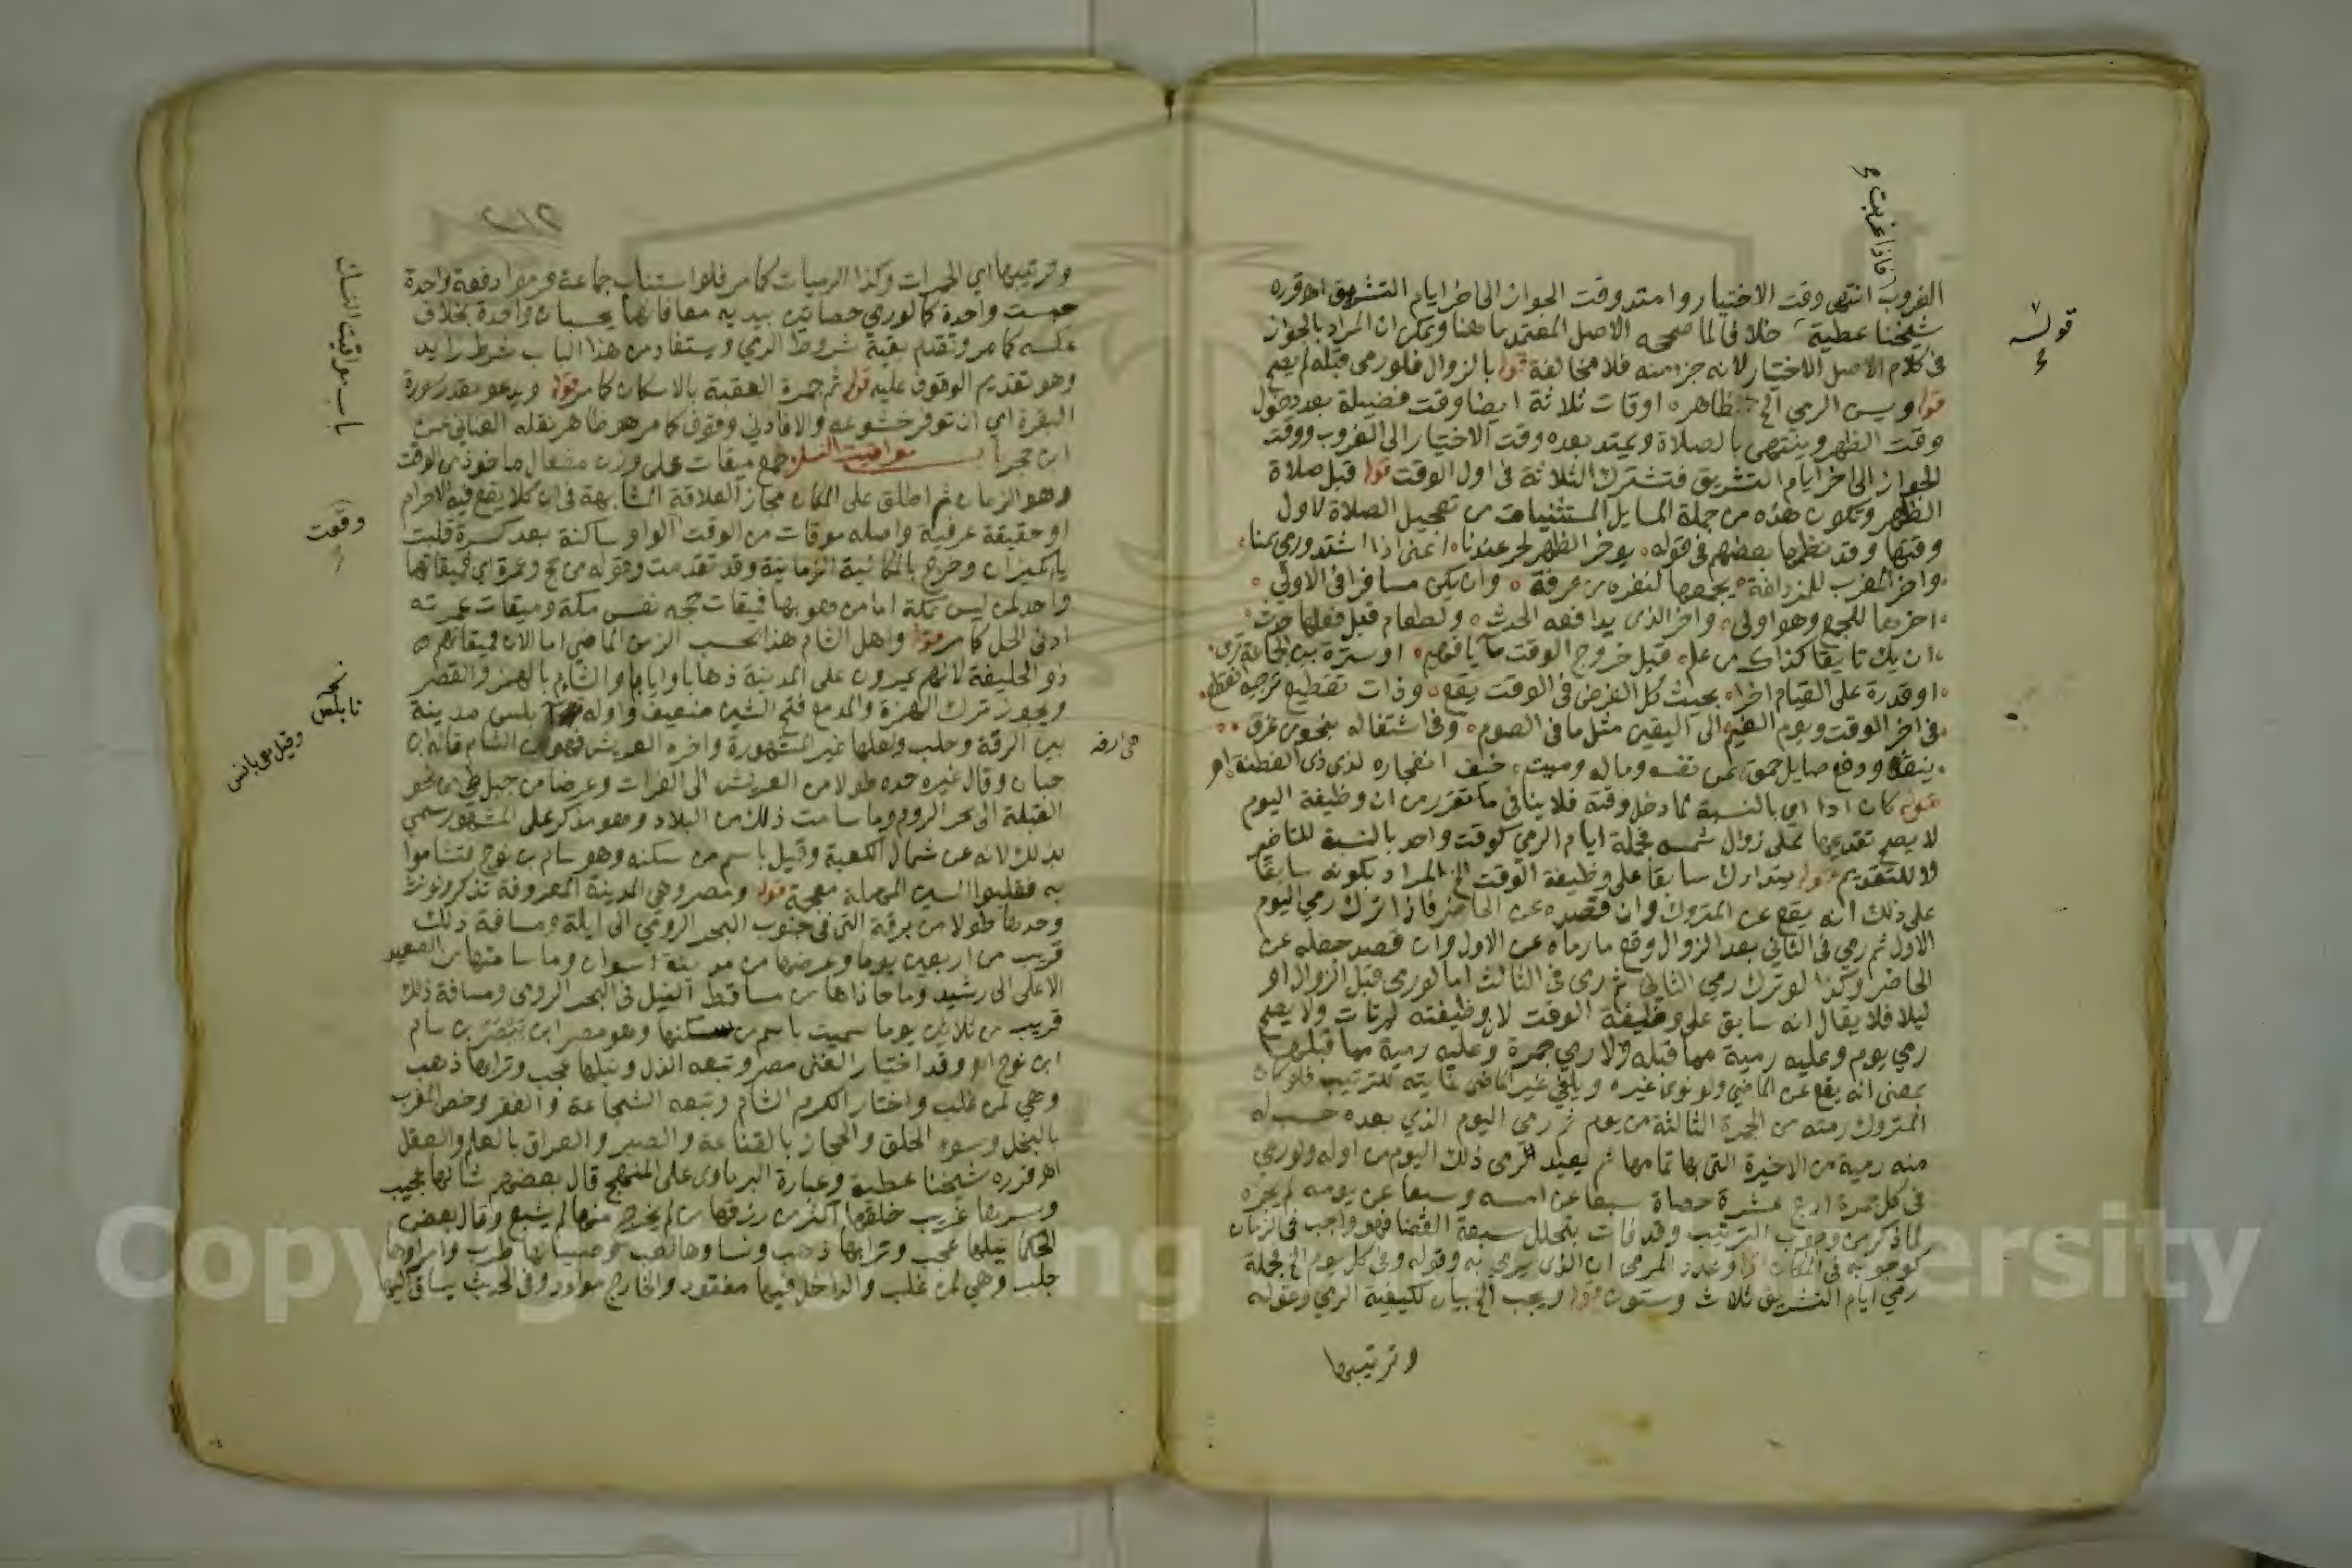 فاذا غربت
الغروب انتهى وقت الاختيار وامتد وقت الجواز الى اخر ايام التشريق اه قرره
شيخنا عطية خلافا لما صححه الاصل المعتمد ما هنا ويمكن ان المراد بالجواز
قوله
في كلام الاصل الاختيار لانه جزء منه فلا مخالفة قوله بالزوال فلو رمى قبله لم يصح
قوله ويسن الرمي الخ ظاهره اوقات ثلاثة ايضا وقت فضيلة بعد دخول
وقت الظهر وينتهي بالصلاة ويمتد بعده وقت الاختيار الى الغروب ووقت
الجواز الى اخر ايام التشريق فتشترك الثلاثة في اول الوقت قوله قبل صلاة
الظهر وتكون هذه من جملة المسايل المستثنيات من تعجيل الصلاة لاول
وقتها وقد نظمها بعضهم في قوله يوخر الظهر لحر عندنا اعني اذا اشتد ورمي بمنا
واخر المغرب للمزدلفة يجمعها لنفره من عرفة وان يكن مسافرا في الاولى
اخرها للجمع وهو اولى واخر الذي يدافعه الحدث ولطعام قبل فعلها حدث
ان يك تايقا كذاك من علم قبل خروج الوقت ما يا فهم او سترة
او قدرة على القيام اخرا بحيث كل الفرض في الوقت يقع وذات تقطيع
في اخر الوقت ويوم الغيم الى اليقين مثل ما في الصوم وفي اشتغاله بنحو من غرق
ينقذ ودفع صايل عن نفسه وماله وميت خيف انفجاره لذي ذي الفطنة اه
قوله كان ادا اي بالنسبة لما دخل وقته فلا ينافي ما تقرر من ان وظيفة اليوم
لا يصح تقديمها على زوال شمسه فجملة ايام الرمي كوقت واحد بالنسبة للتاخير
لا للتقديم قوله بتدارك سابقا على وظيفة الوقت الخ المراد بكونه سابقا
على ذلك انه يقع عن المتروك وان قصده عن الحاضر فاذا ترك رمي اليوم
الاول ثم رمى في الثاني بعد الزوال وقع ما رماه عن الاول وان قصد جعله عن
الحاضر وكذا لو ترك رمي الثاني ثم رمى في الثالث اما لو رمى قبل الزوال او
ليلا فلا يقال انه سابق على وظيفة الوقت لان وظيفته لم تات ولا يصح
رمي يوم وعليه رمية مما قبله ولا رمي جمرة وعليه رمية مما قبلها
بمعنى انه يقع عن الماضي ولو نوى غيره ويلغي غير الماضي للترتيب فلو كان
المتروك رمية من الجمرة الثالثة من يوم ثم رمى اليوم الذي بعده حسب له
منه رمية من الاخيرة التي بها تمامها ثم يعيد رمي ذلك اليوم من اوله ولو رمى
في كل جمرة اربع عشرة حصاة سبعا عن امسه وسبعا عن يومه لم يجزه
لما ذكر من وجوب الترتيب وقد فات بتخلل سبعة القضا فهو واجب في الزمان
كوجوبه في المكان قوله وعدد المرمي اي الذي يرمي به وقوله وفي كل يوم الخ فجملة
رمي ايام التشريق ثلاث وستون قوله ويجب الخ بيان لكيفية الرمي وقوله
وترتيبها
وترتيبها اي الجمرات وكذا الرميات كما مر فلو استناب جماعة ورموا دفعة واحدة
حسبت واحدة كما لو رمى حصاتين بيديه معا فانها يحسبان واحدة بخلاف
عكسه كما مر وتقدم بقية شروط الرمي ويستفاد من هذا الباب شرط زايد
وهو تقديم الوقوف عليه قوله ثم جمرة العقبة بالاسكان كما مر قوله ويدعو بقدر سورة
البقرة اي ان توفر خشوعه والا فادنى وقوف كما مر هو ظاهر نقله العناني عن
ابن حجر باب مواقيت النسك جمع ميقات على وزن مفعال ماخوذ من الوقت
باب مواقيت النسك
وهو الزمان ثم اطلق على المكان مجازا لعلاقة المشابهة في ان كلا يقع فيه الاحرام
او حقيقة عرفية واصله موقات من الوقت الواو ساكنة بعد كسرة قلبت
وقعت
يا كميزان وخرج بالمكانية الزمانية وقد تقدمت وقوله من حج وعمرة اي فميقاتها
واحد لمن ليس بمكة اما من هو بها فميقات حجه نفس مكة وميقات عمرته
ادنى الحل كما مر قوله واهل الشام هذا بحسب الزمن الماضي اما الان فميقاتهم
ذو الحليفة لانهم يمرون على المدينة ذهابا وايابا والشام بالهمز والقصر
ويجوز ترك الهمزة والمد مع فتح الشين ضعيف واوله بلس مدينة
نابلس
وقيل هي بالس
بين الرقة وحلب ولعلها غير المشهورة واخره العريش فهو من الشام قاله ابن
حبان وقال غيره حده طولا من العريش الى الفرات وعرضا من جبل طي من نحو
القبلة الى بحر الروم وما سامت ذلك من البلاد وهو مذكر على المشهور سمي
بذلك لانه عن شمال الكعبة وقيل باسم من سكنه وهو سام بن نوح فتشاموا
به فقلبوا السين المهملة معجمة قوله ومصر وهي المدينة المعروفة تذكر وتونث
وحدها طولا من برقة التي في جنوب البحر الرومي الى ايلة ومسافة ذلك
قريب من اربعين يوما وعرضها من مدينة اسوان وما سامتها من الصعيد
الاعلى الى رشيد وما حاذاها من مساقط النيل في البحر الرومي ومسافة ذلك
قريب من ثلاثين يوما سميت باسم من سكنها وهو مصر ابن بيصر بن سام
ابن نوح اه وقد اختار الغنى مصر وتبعه الذل ونيلها عجب وترابها ذهب
وهي لمن غلب واختار الكرم الشام وتبعه الشجاعة والفقر وخص المغرب
بالبخل وسوء الخلق والحجاز بالقناعة والصبر والعراق بالعلم والعقل
اه قرره شيخنا عطية وعبارة البرماوي على المنهج قال بعضهم شانها عجيب
وسرها غريب خلقها اكثر من رزقها من لم يخرج منها لم يشبع وقال بعض
الحكما نيلها عجب وترابها ذهب ونساوها لعب وصبيانها طرب وامراوها
جلب وهي لمن غلب والداخل فيها مفقود والخارج مولود وفي الحديث يساق اليها